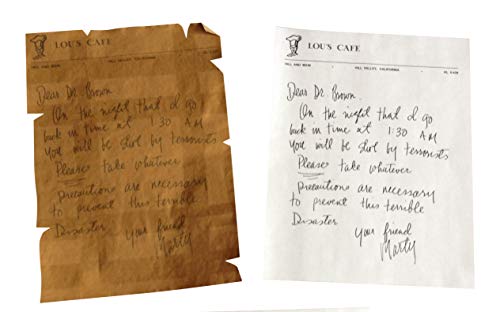 LOU'S CAFE
HILL VALLEY, CALIFORNIA
Dear Dr. Brown.
On the night that I go
back in time at 1:30 AM
You will be shot by terrorists
Please take whatever
precautions are necessary
to prevent this terrible
Disaster
Your friend
Marty
LOU'S CAFE
HILL VALLEY, CALIFORNIA
Dear Dr. Brown.
On the night that I go
back in time at 1:30 AM
You will be shot by terrorists
Please take whatever
precautions are necessary
to prevent this terrible
Disaster
Your friend
Marty